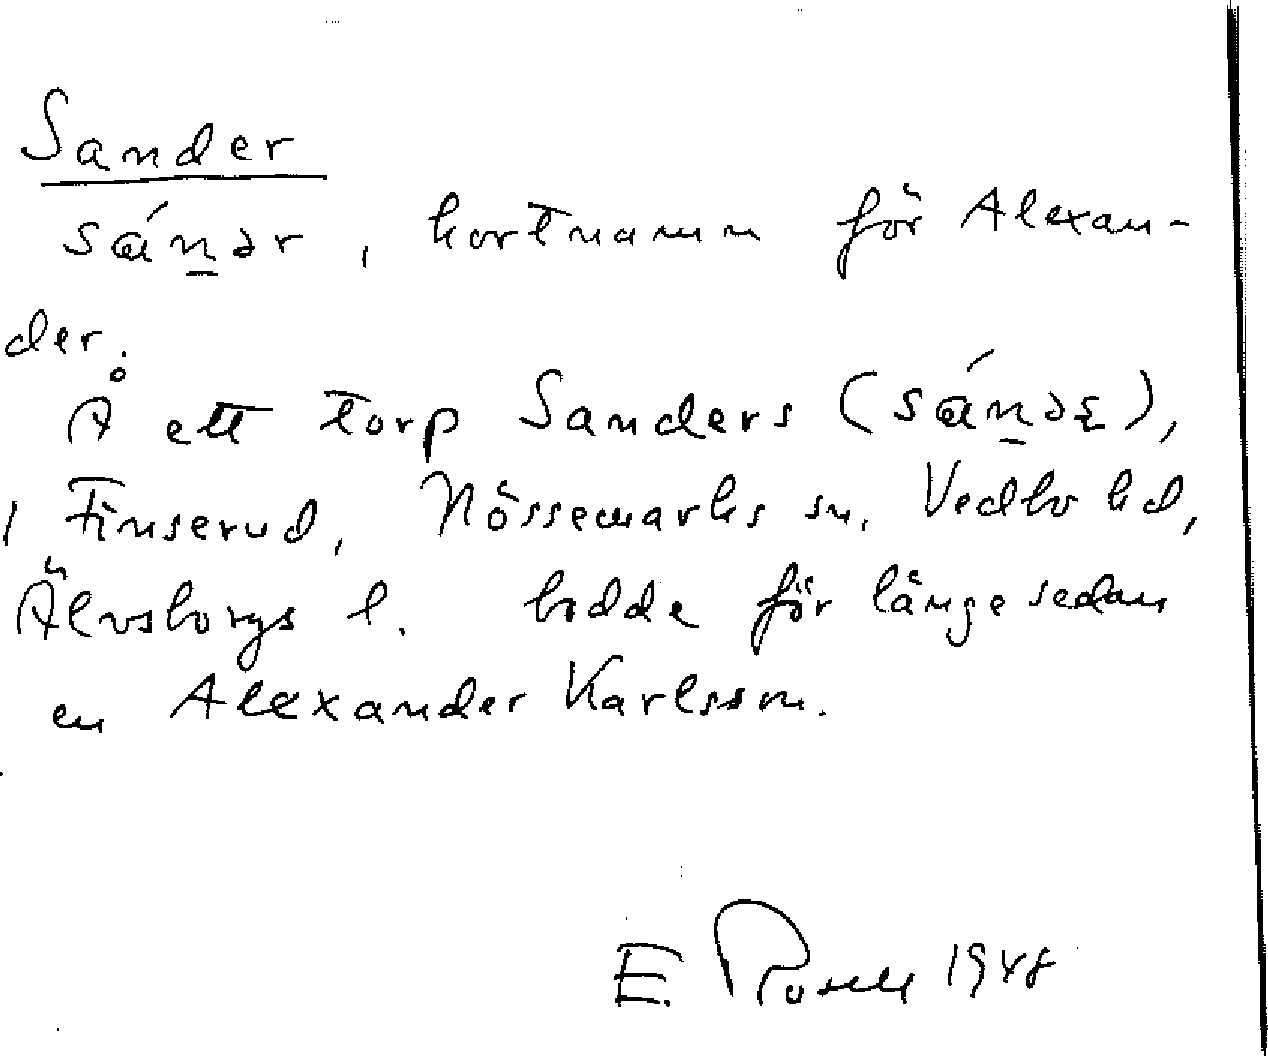 Sander
sá̱nər, kortnamn för Alexan-
der.
Å ett torp Sanders (sá̱nəs),
i Finserud, Nössemarks sn, Vedbo hd,
Älvsborgs l. bodde för länge sedan
en Alexander Karlsson.
E. Rosell 1948